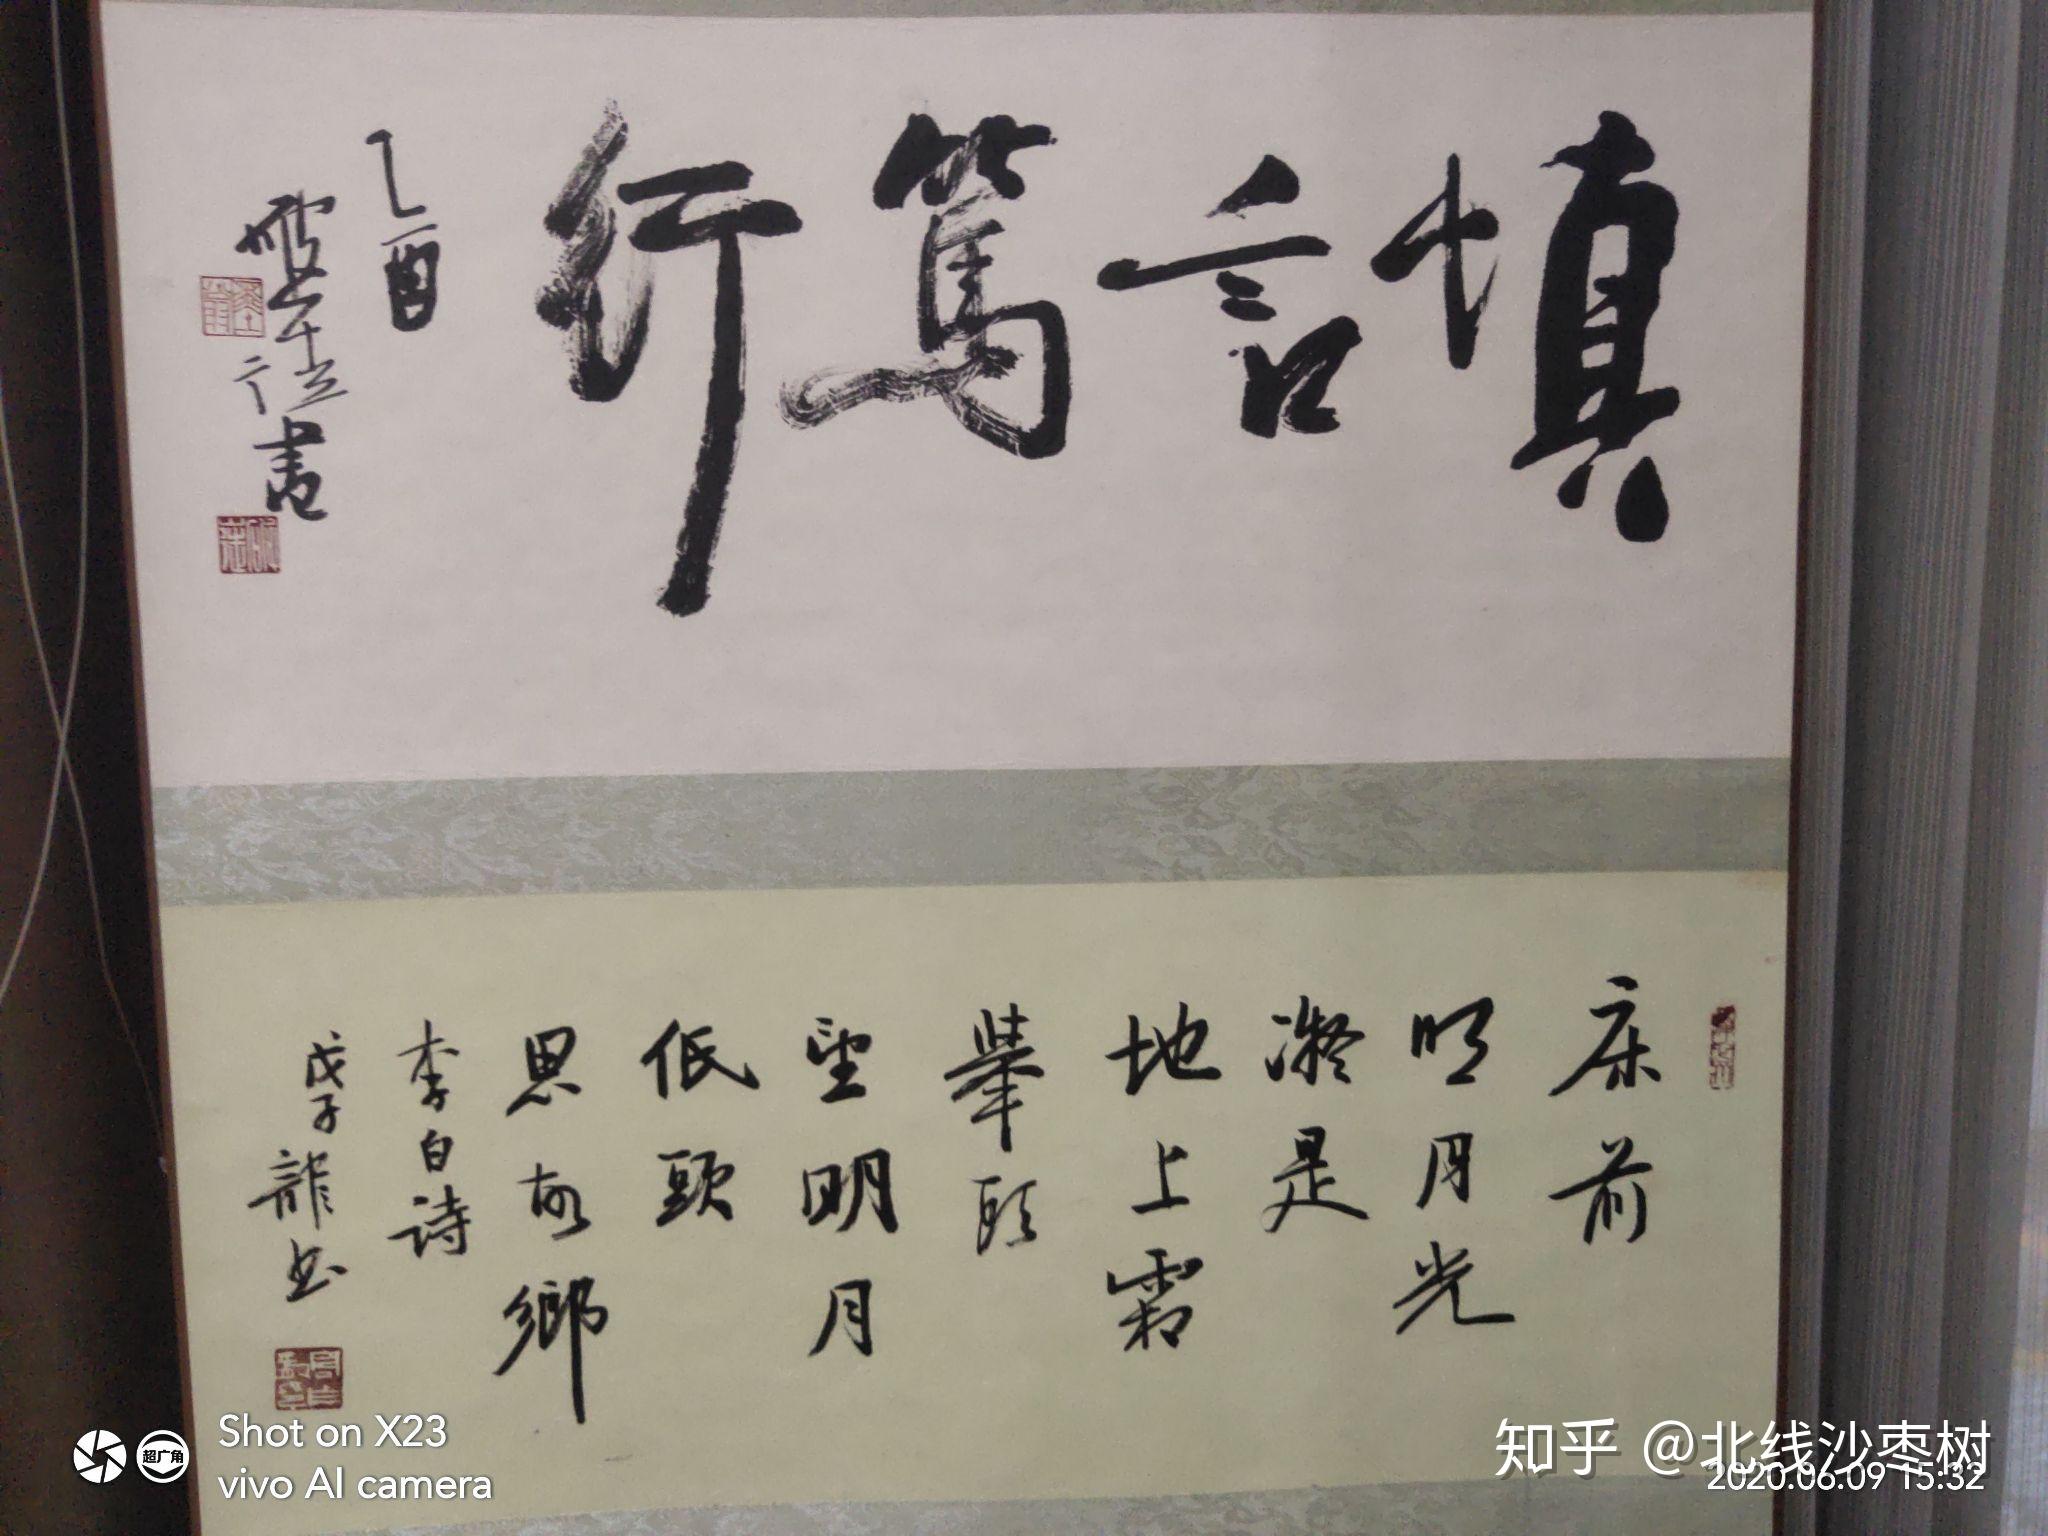 慎言篤行
乙酉
書
床前
明月光
凝是
地上霜
舉頭
望明月
低頭
思故鄉
李白詩
戊子龍书
Shot on X23
vivo AI camera
超广角
知乎 @北线沙枣树
2020.06.09 15:32